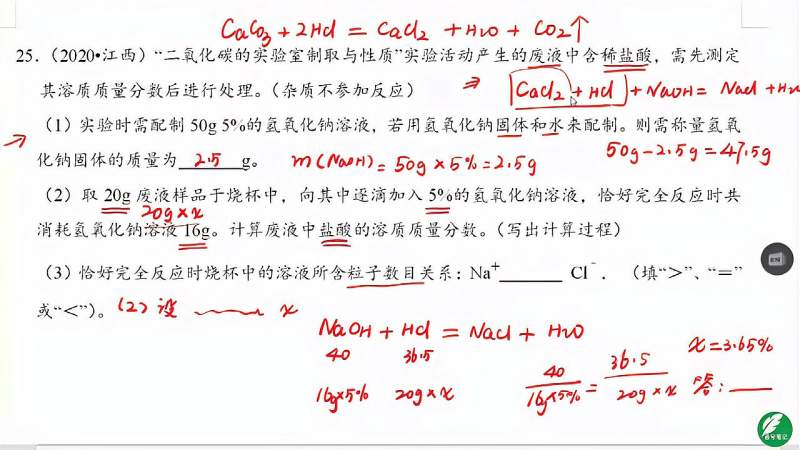 CaCO3 + 2HCl = CaCl2 + H2O + CO2↑
25.（2020•江西）“二氧化碳的实验室制取与性质”实验活动产生的废液中含稀盐酸，需先测定
其溶质质量分数后进行处理。（杂质不参加反应）
⇒ CaCl2 + HCl + NaOH = NaCl + H2O
（1）实验时需配制 50g 5%的氢氧化钠溶液，若用氢氧化钠固体和水来配制。则需称量氢氧
化钠固体的质量为 2.5 g。
m(NaOH) = 50g × 5% = 2.5g
50g - 2.5g = 47.5g
（2）取 20g 废液样品于烧杯中，向其中逐滴加入 5%的氢氧化钠溶液，恰好完全反应时共
20g × x
消耗氢氧化钠溶液 16g。计算废液中盐酸的溶质质量分数。（写出计算过程）
（3）恰好完全反应时烧杯中的溶液所含粒子数目关系：Na+______ Cl-．（填“>”、“=”
或“<”）。
(2) 设 x
NaOH + HCl = NaCl + H2O
40 36.5
16g×5% 20g × x
40/16g×5% = 36.5/20g × x
x = 3.65%
答：